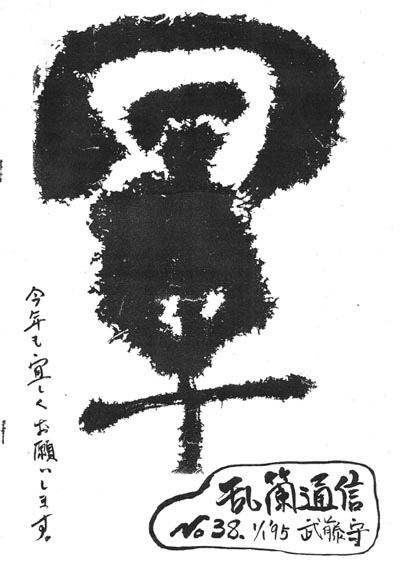 今年も宜しくお願いします。
乱蘭通信
No 38. 1/1 '95 武藤守